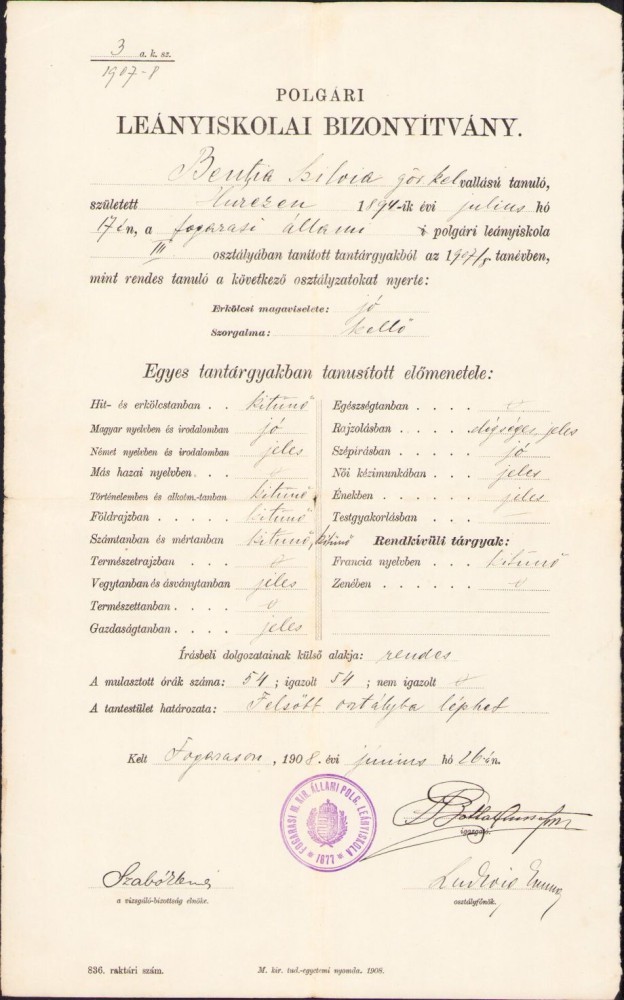 3 a. k. sz.
1907-8
POLGÁRI
LEÁNYISKOLAI BIZONYÍTVÁNY.
Bentia Szilvia gör. kel vallású tanuló,
született Hurezen 1894-ik évi julius hó
17én, a fogarasi állami i polgári leányiskola
III osztályában tanított tantárgyakból az 1907/8 tanévben,
mint rendes tanuló a következő osztályzatokat nyerte:
Erkölcsi magaviselete: jó
Szorgalma: kellő
Egyes tantárgyakban tanusított előmenetele:
Hit- és erkölcstanban . . kitünő
Magyar nyelvben és irodalomban jó
Német nyelvben és irodalomban jeles
Más hazai nyelvben . . .
Történelemben és alkotm.-tanban kitünő
Földrajzban . . . . . kitünő
Számtanban és mértanban kitünő, kitünő
Természetrajzban . . .
Vegytanban és ásványtanban jeles
Természettanban . . . .
Gazdaságtanban . . . . jeles
Egészségtanban . . . .
Rajzolásban . . . . . jeles
Szépirásban . . . . . jó
Női kézimunkában . . . jeles
Énekben . . . . . . jeles
Testgyakorlásban . . . .
Rendkívüli tárgyak:
Francia nyelvben . . . kitünő
Zenében . . . . . .
Írásbeli dolgozatainak külső alakja: rendes
A mulasztott órák száma: 54 ; igazolt 54 ; nem igazolt
A tantestület határozata: Felsőbb osztályba léphet
Kelt Fogarason, 1908. évi junius hó 26-án.
FOGARASI M. KIR. ÁLLAMI POLG. LEÁNYISKOLA
* 1877 *
igazgató.
Szabó
a vizsgáló-bizottság elnöke.
Ludwig Emma
osztályfőnök.
836. raktári szám.
M. kir. tud.-egyetemi nyomda. 1908.